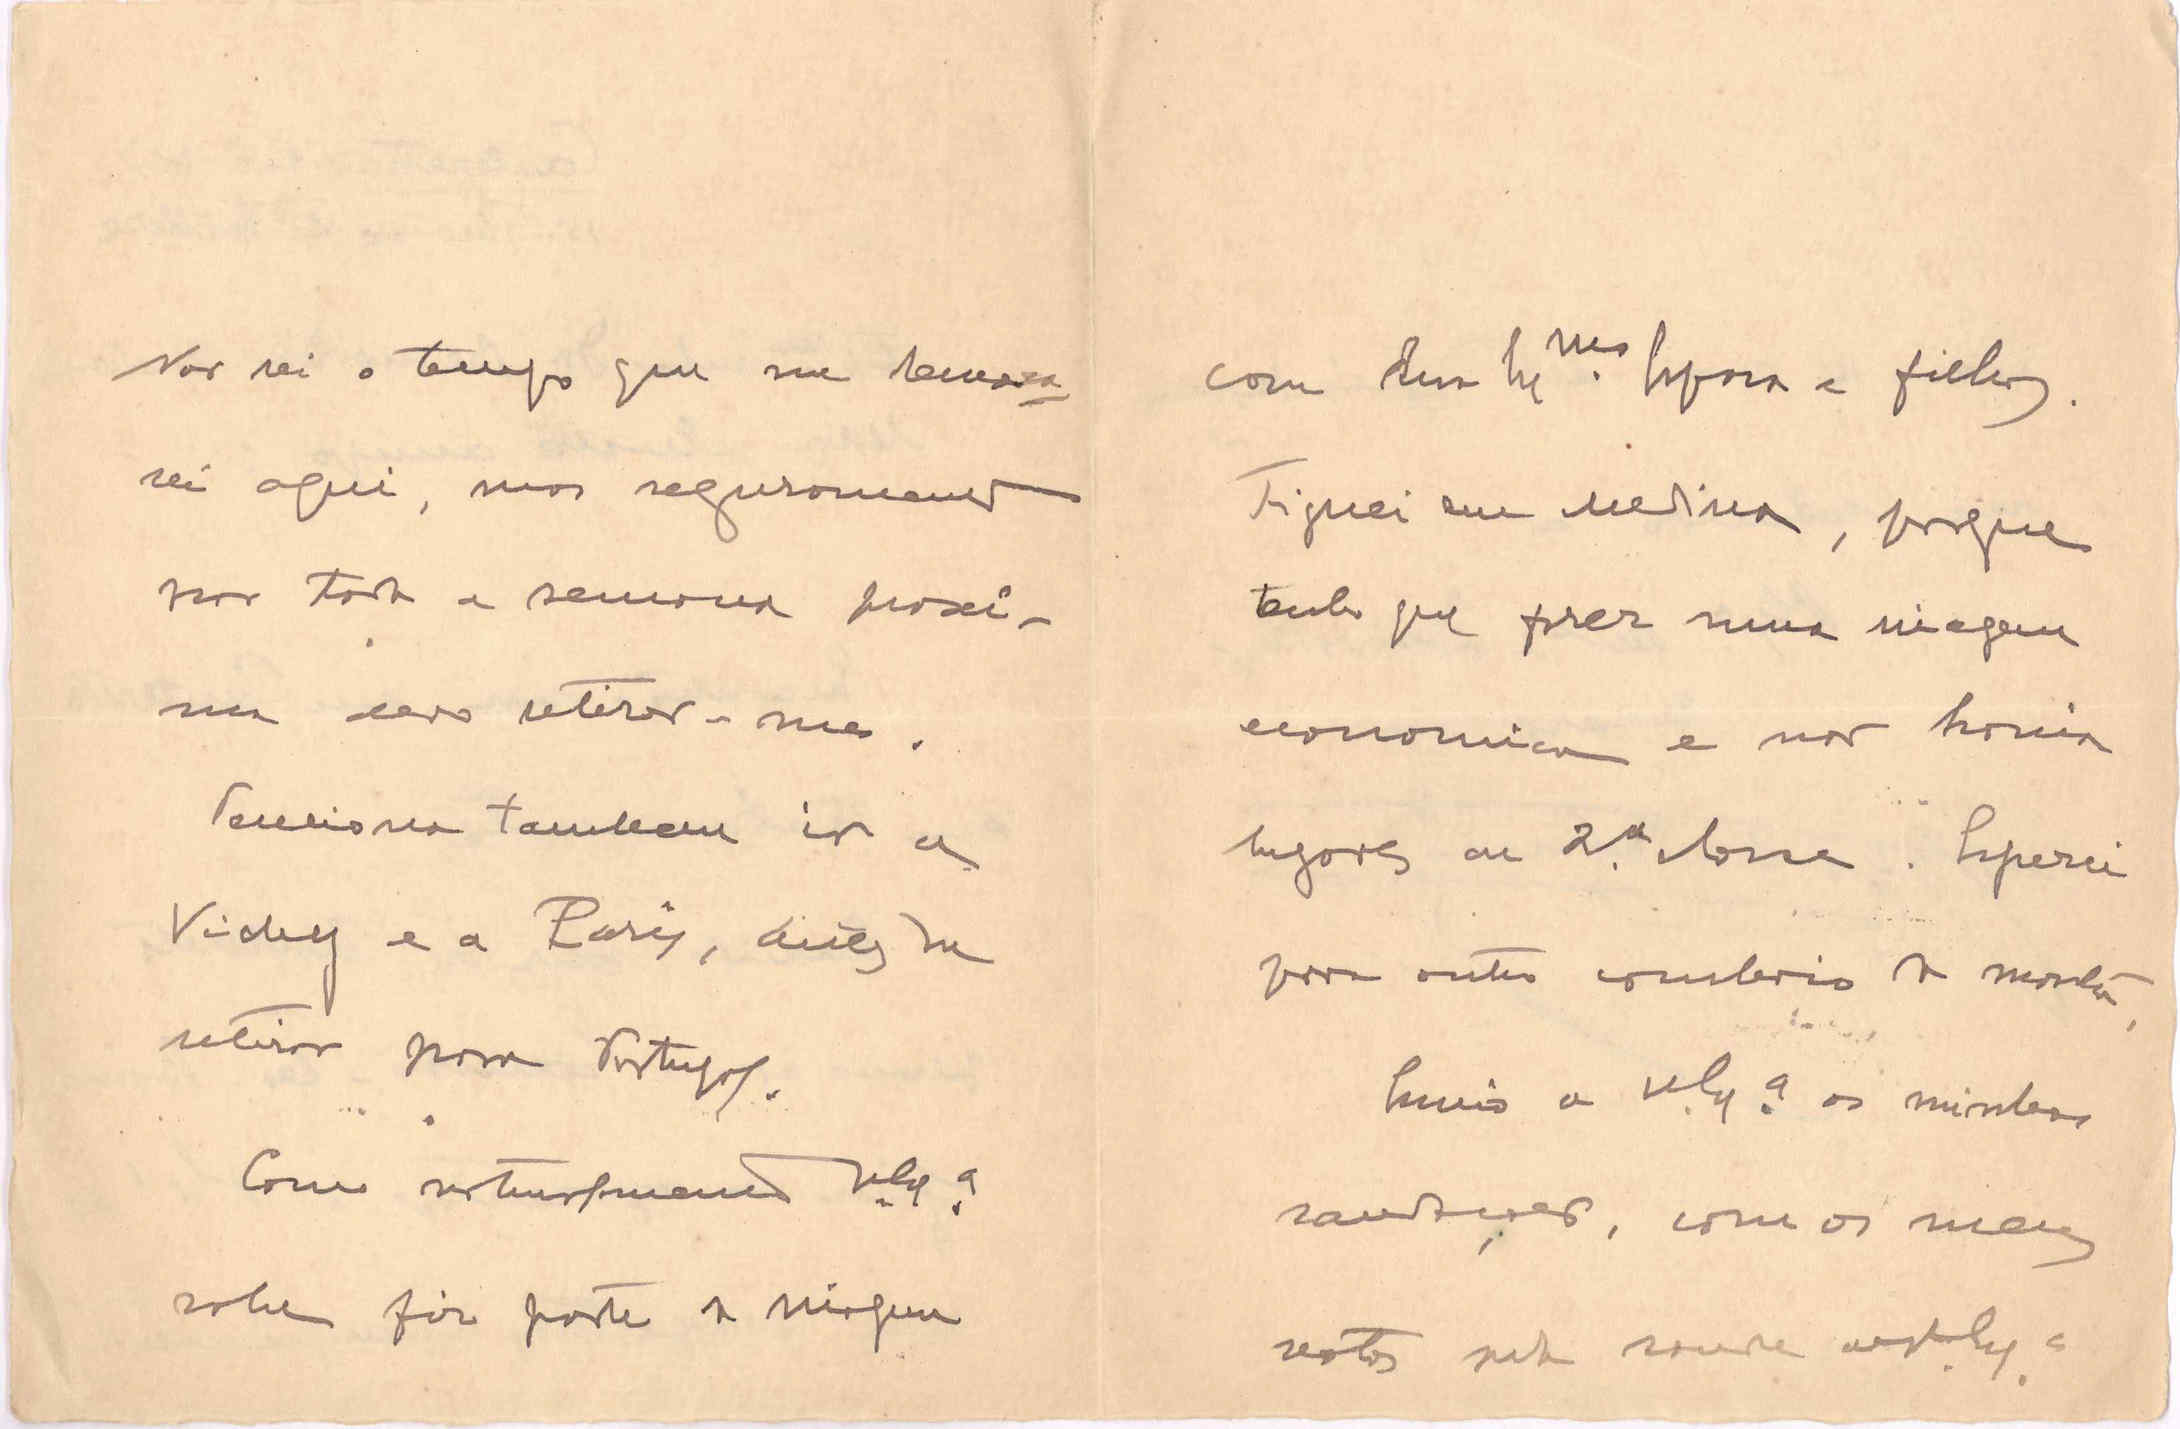 Não sei o tempo que me demora
rei aqui, mas seguramente
por toda a semana proxi-
ma devo retirar-me.
Tenciono tambem ir a
Vichy e a Paris, antes de
retirar para Portugal.
Como naturalmente V. Ex.ª
sabe fiz parte da viagem
com Sua Ex.ma Esposa e filhos.
Fiquei em Medina, porque
tenho que fazer uma viagem
economica e não havia
lugares de 2.ª classe. Esperei
para outro comboio da manhã.
Envio a V. Ex.ª as minhas
saudações, com os meus
votos pela saude de V. Ex.ª